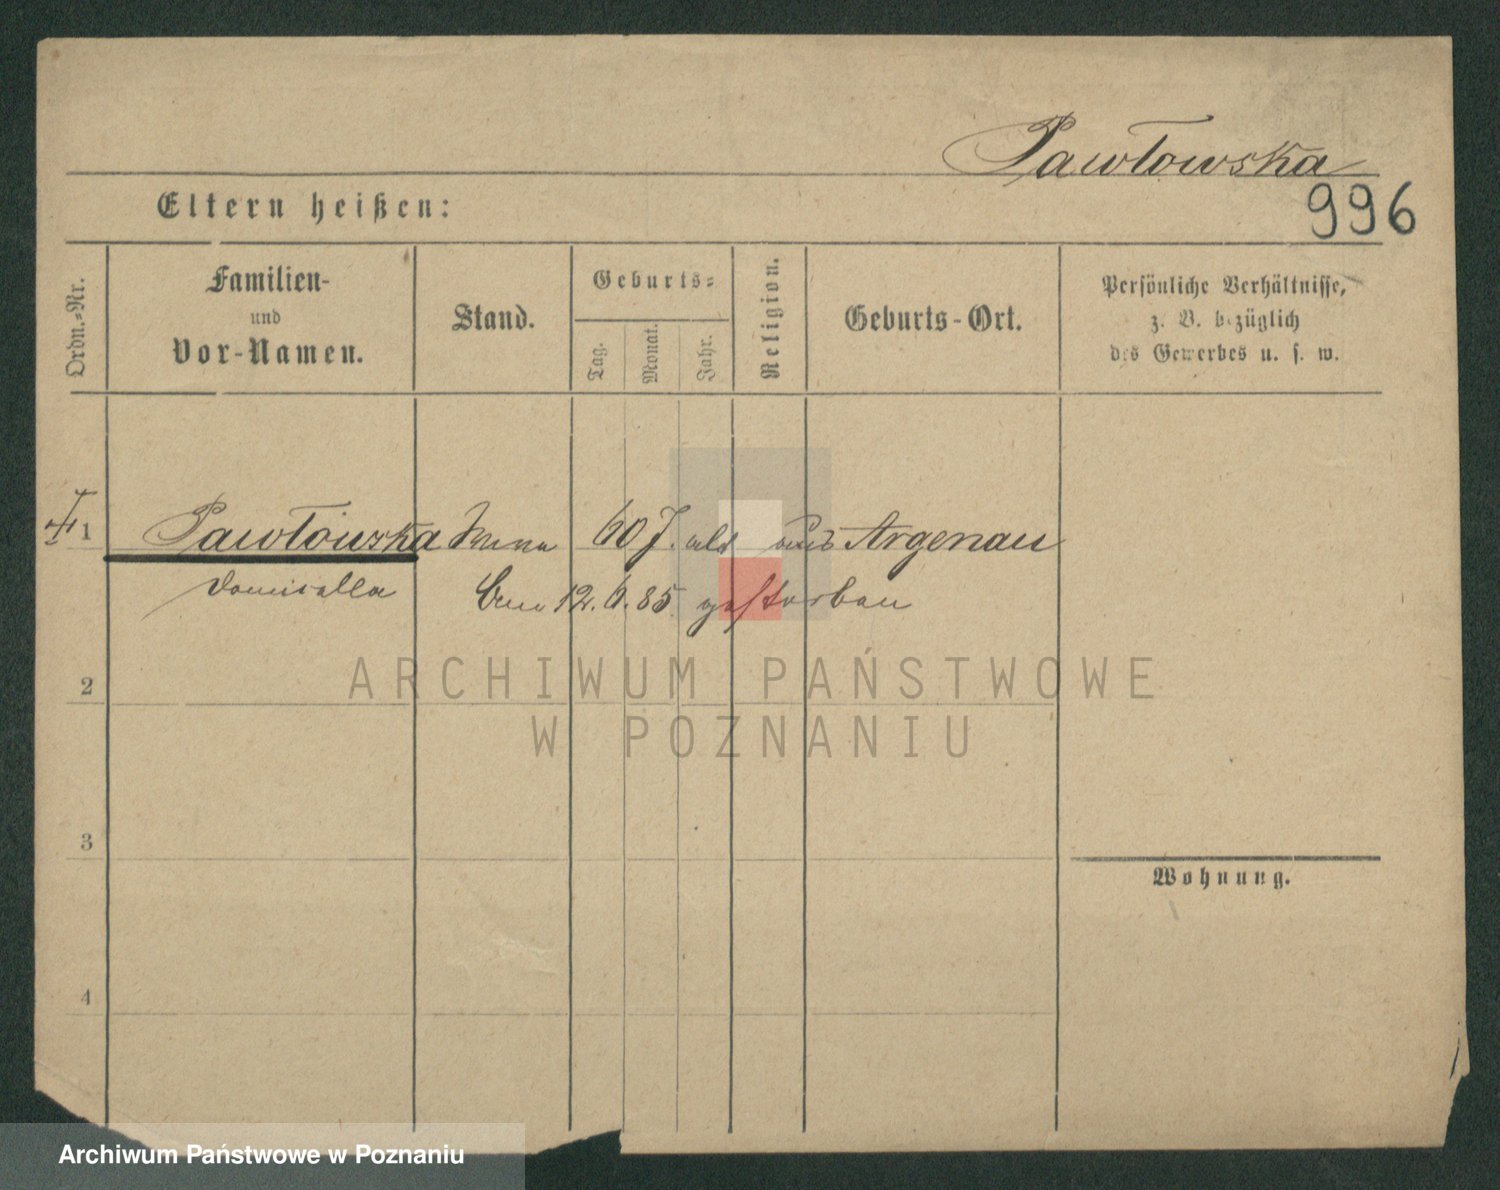 Pawłowska
996
Eltern heißen:
Ordn.-Nr.
Familien-
und
Vor-Namen.
Stand.
Geburts-
Tag.
Monat.
Jahr.
Religion.
Geburts-Ort.
Persönliche Verhältnisse,
z. B. bezüglich
des Gewerbes u. s. w.
1 Pawłowska 60 J. alt aus Argenau
Domicella 12. 6. 85 gestorben
2
3
4
Wohnung.
ARCHIWUM PAŃSTWOWE
W POZNANIU
Archiwum Państwowe w Poznaniu